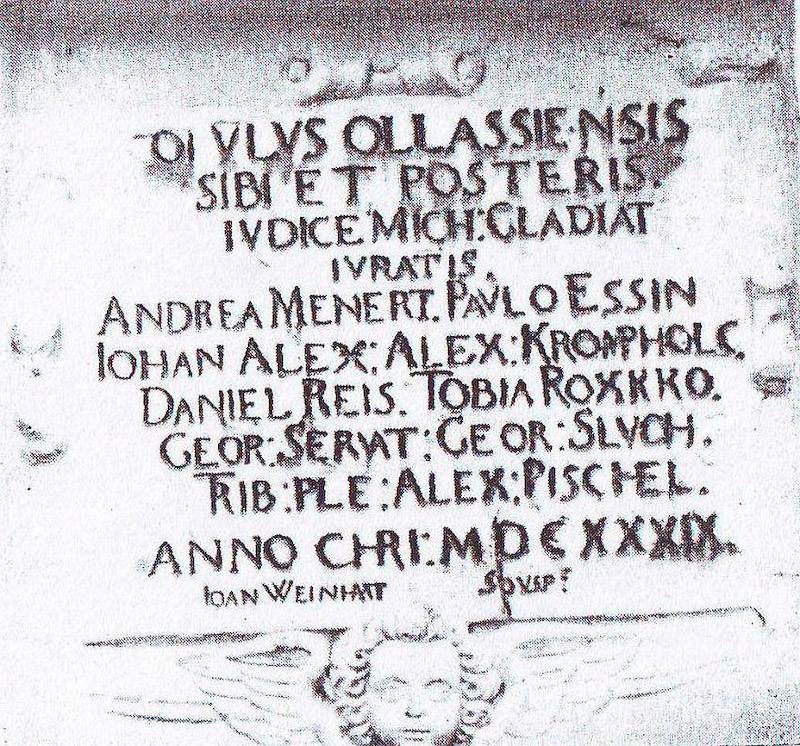 OLLASSIENSIS
SIBI ET POSTERIS.
IVDICE MICH: GLADIAT
IVRATIS.
ANDREA MENERT. PAVLO ESSIN
IOHAN ALEX: ALEX: KROMPHOLC.
DANIEL REIS. TOBIA
GEOR: SERVAT: GEOR: SLVCH.
TRIB: PLE: ALEX: PISCHEL.
ANNO CHRI: MDCXXXIX.
IOAN WEINHART